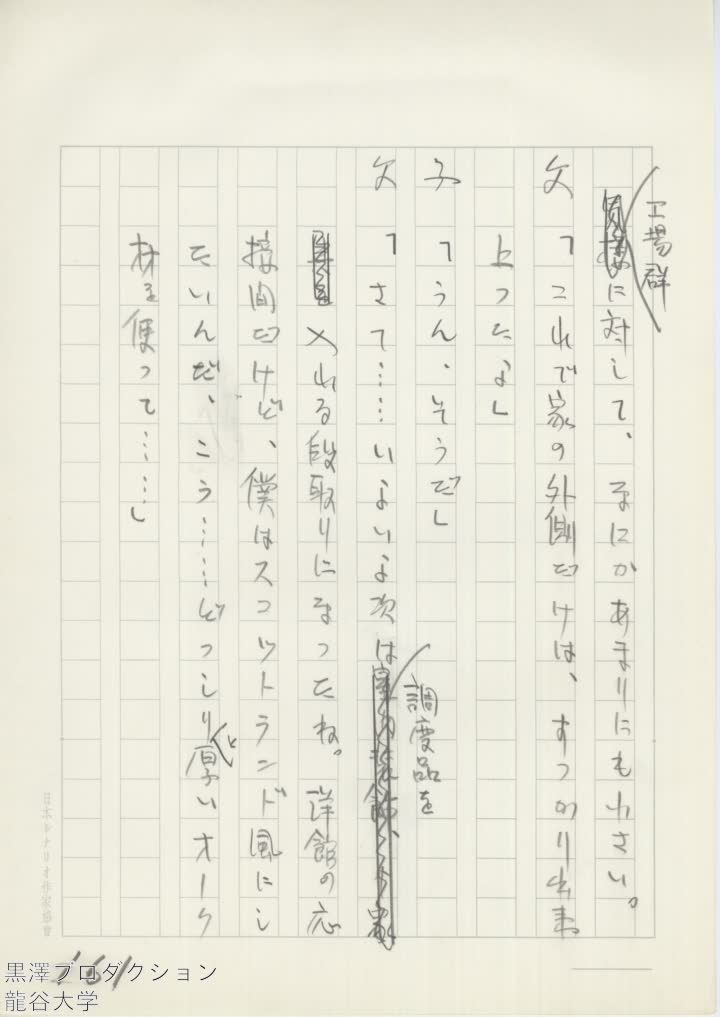 工場群
に対して、なにかあまりにも小さい。
父「これで家の外側だけは、すつかり出来
上つたなよ」
子「うん、そうだ」
父「さて……いよいよ次は
調度品を
入れる段取りになつたね。洋館の応
接間だけど、僕はスコットランド風にし
たいんだ、こう……どつしりと厚いオーク
材を使つて……」
日本シナリオ作家協會
161
黒澤プロダクション
龍谷大学